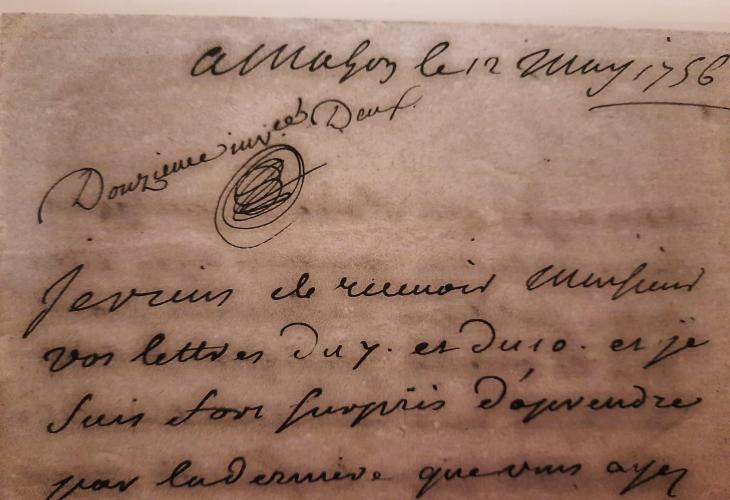 a Mahon le 12 May 1756
Douzieme
Je viens de recevoir Monsieur
vos lettres du 7. et du 10. et je
suis fort surpris d'aprendre
par la derniere que vous ayez